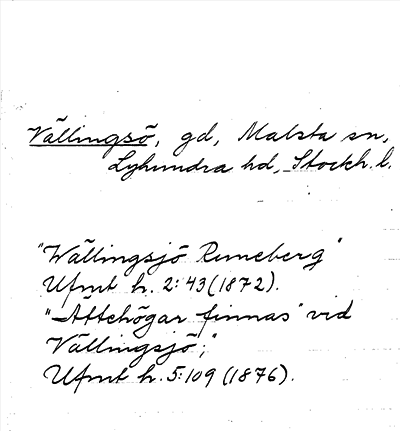 Vällingsö, gd, Malsta sn,
Lyhundra hd, Stockh. l.
"Wällingsjö Runeberg"
Ufmt h. 2:43 (1872).
"Ättehögar finnas vid
Vällingsjö;"
Ufmt h. 5:109 (1876).